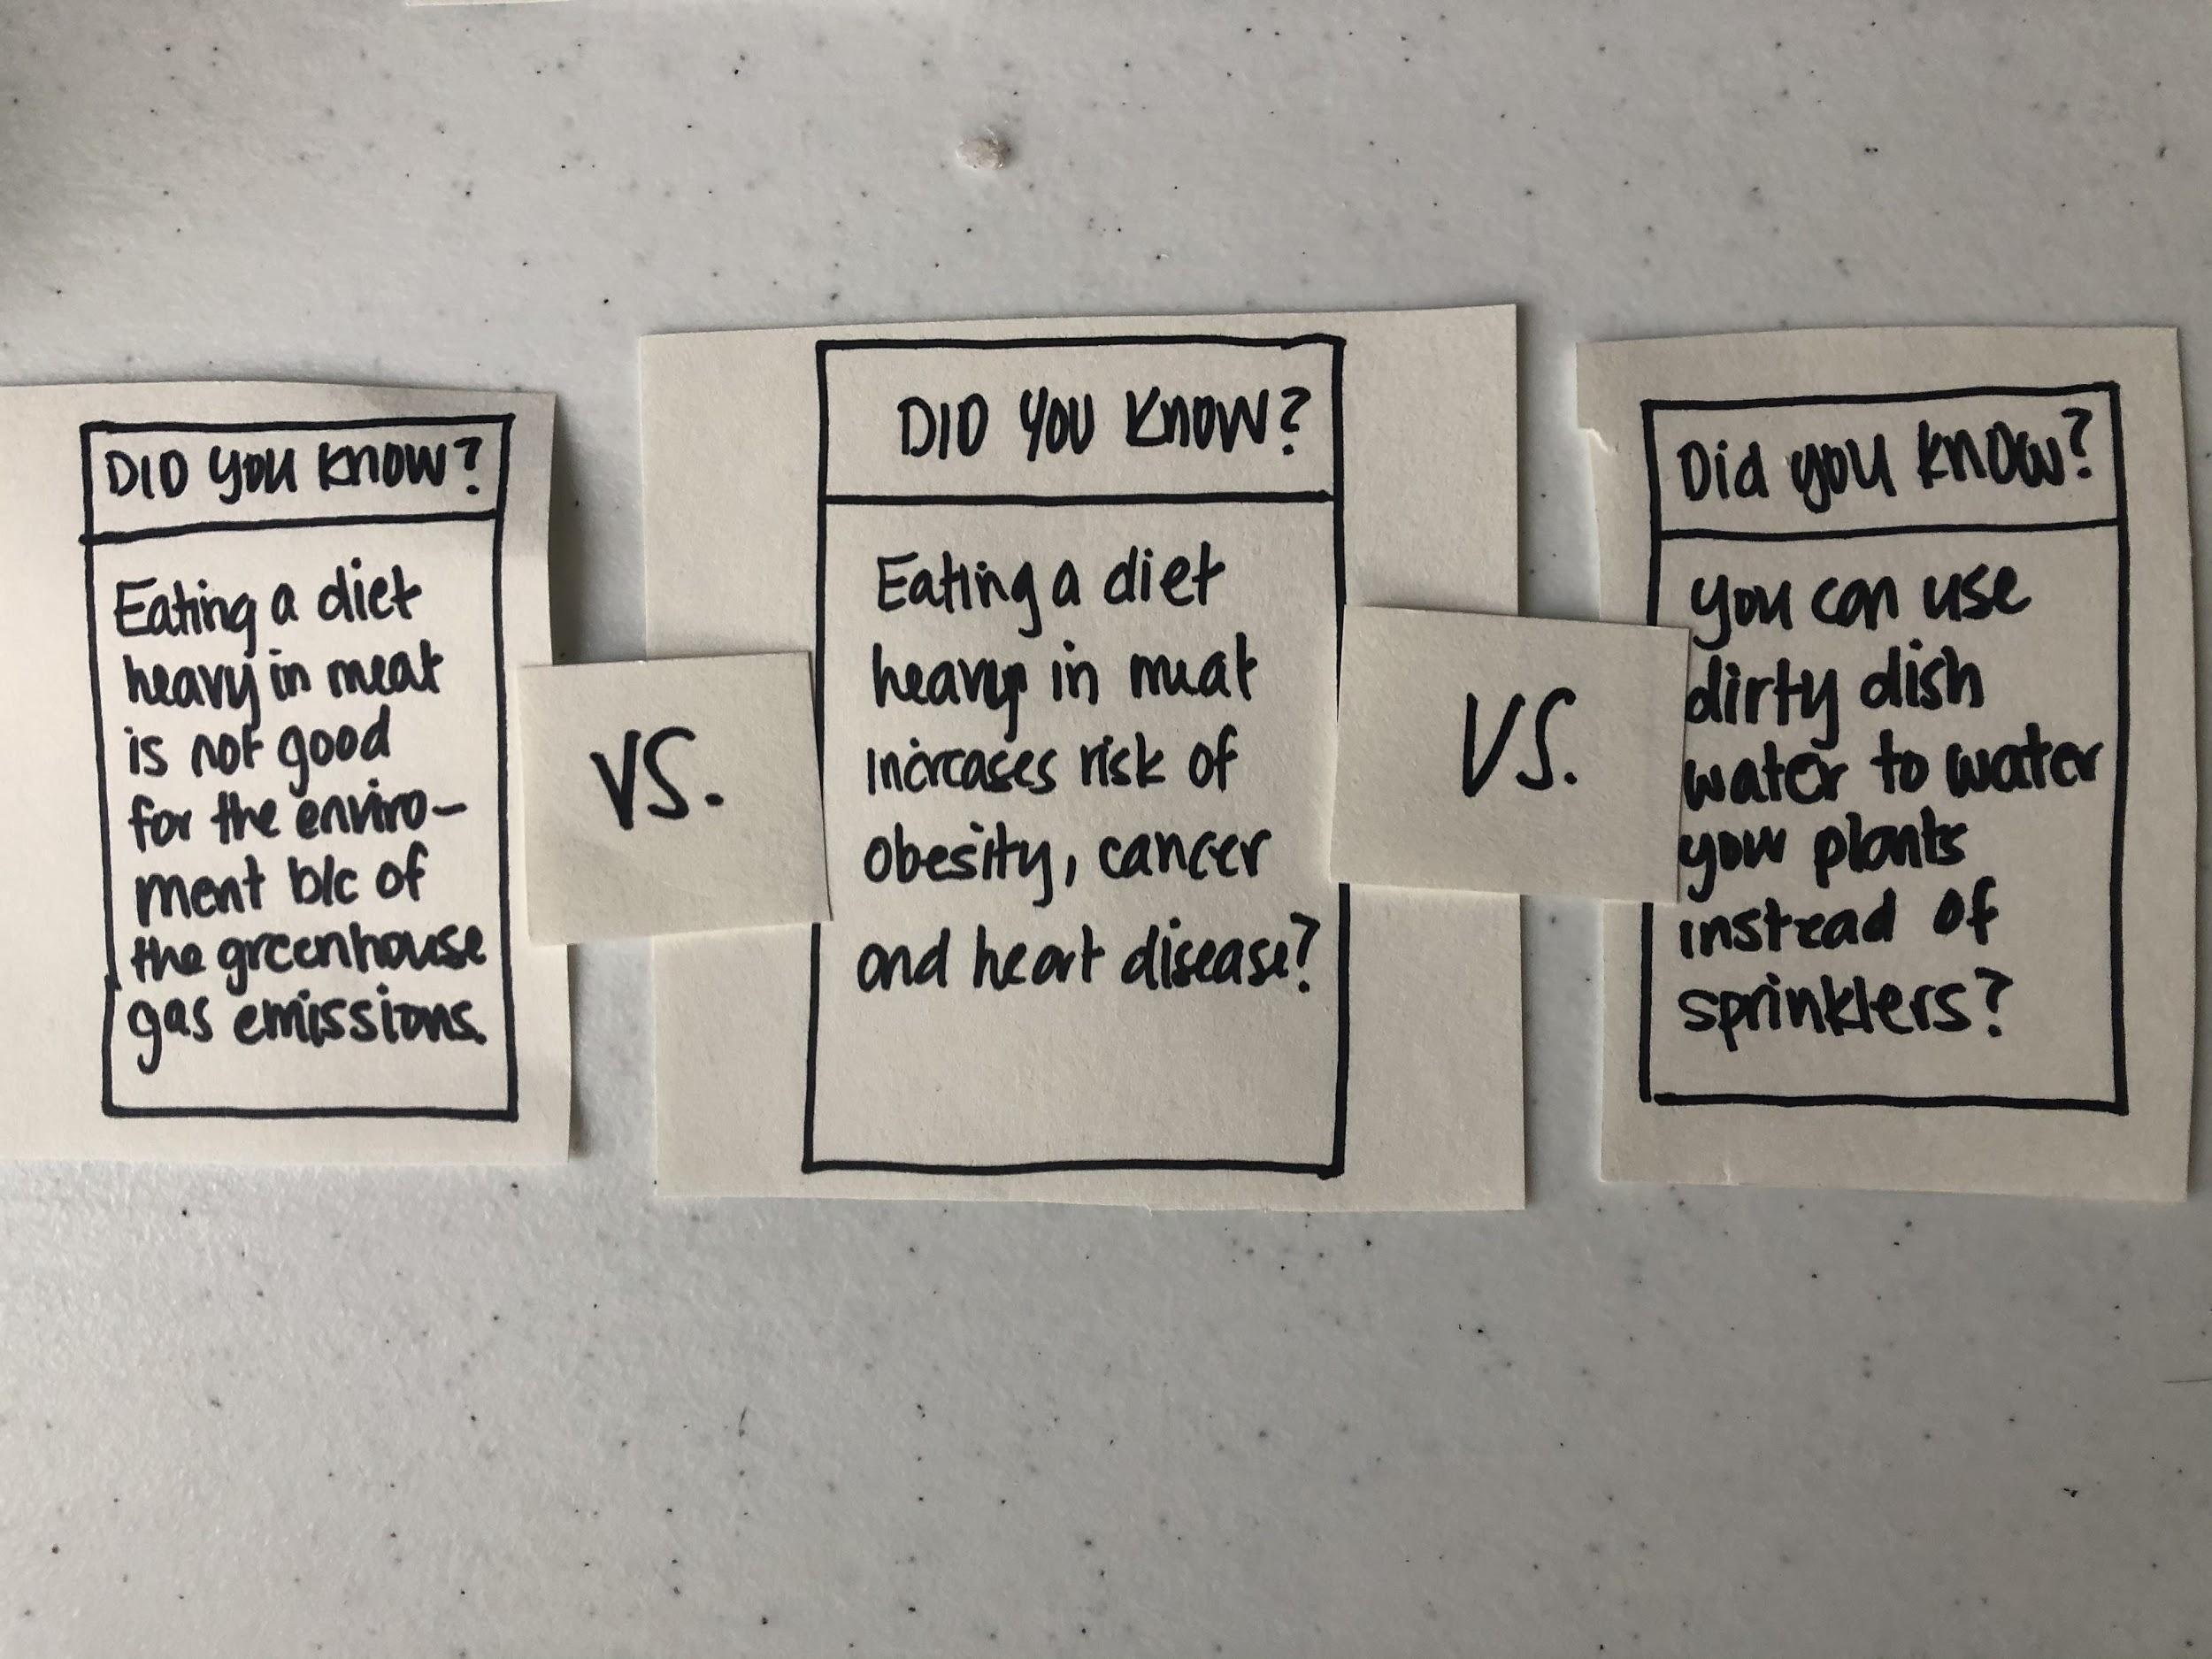 DID YOU KNOW?
Eating a diet
heavy in meat
is not good
for the enviro-
ment b/c of
the greenhouse
gas emissions.
VS.
DID YOU KNOW?
Eating a diet
heavy in meat
increases risk of
obesity, cancer
and heart disease?
VS.
Did you know?
you can use
dirty dish
water to water
your plants
instead of
sprinklers?